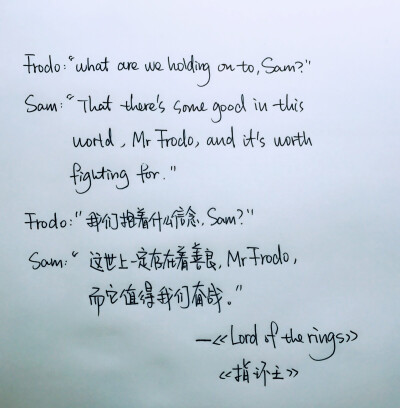 Frodo: "what are we holding on to, Sam?"
Sam: "That there's some good in this
world, Mr Frodo, and it's worth
fighting for."
Frodo: "我们抱着什么信念, Sam?"
Sam: "这世上一定存在着善良, Mr Frodo,
而它值得我们奋战。"
—《Lord of the rings》
《指环王》